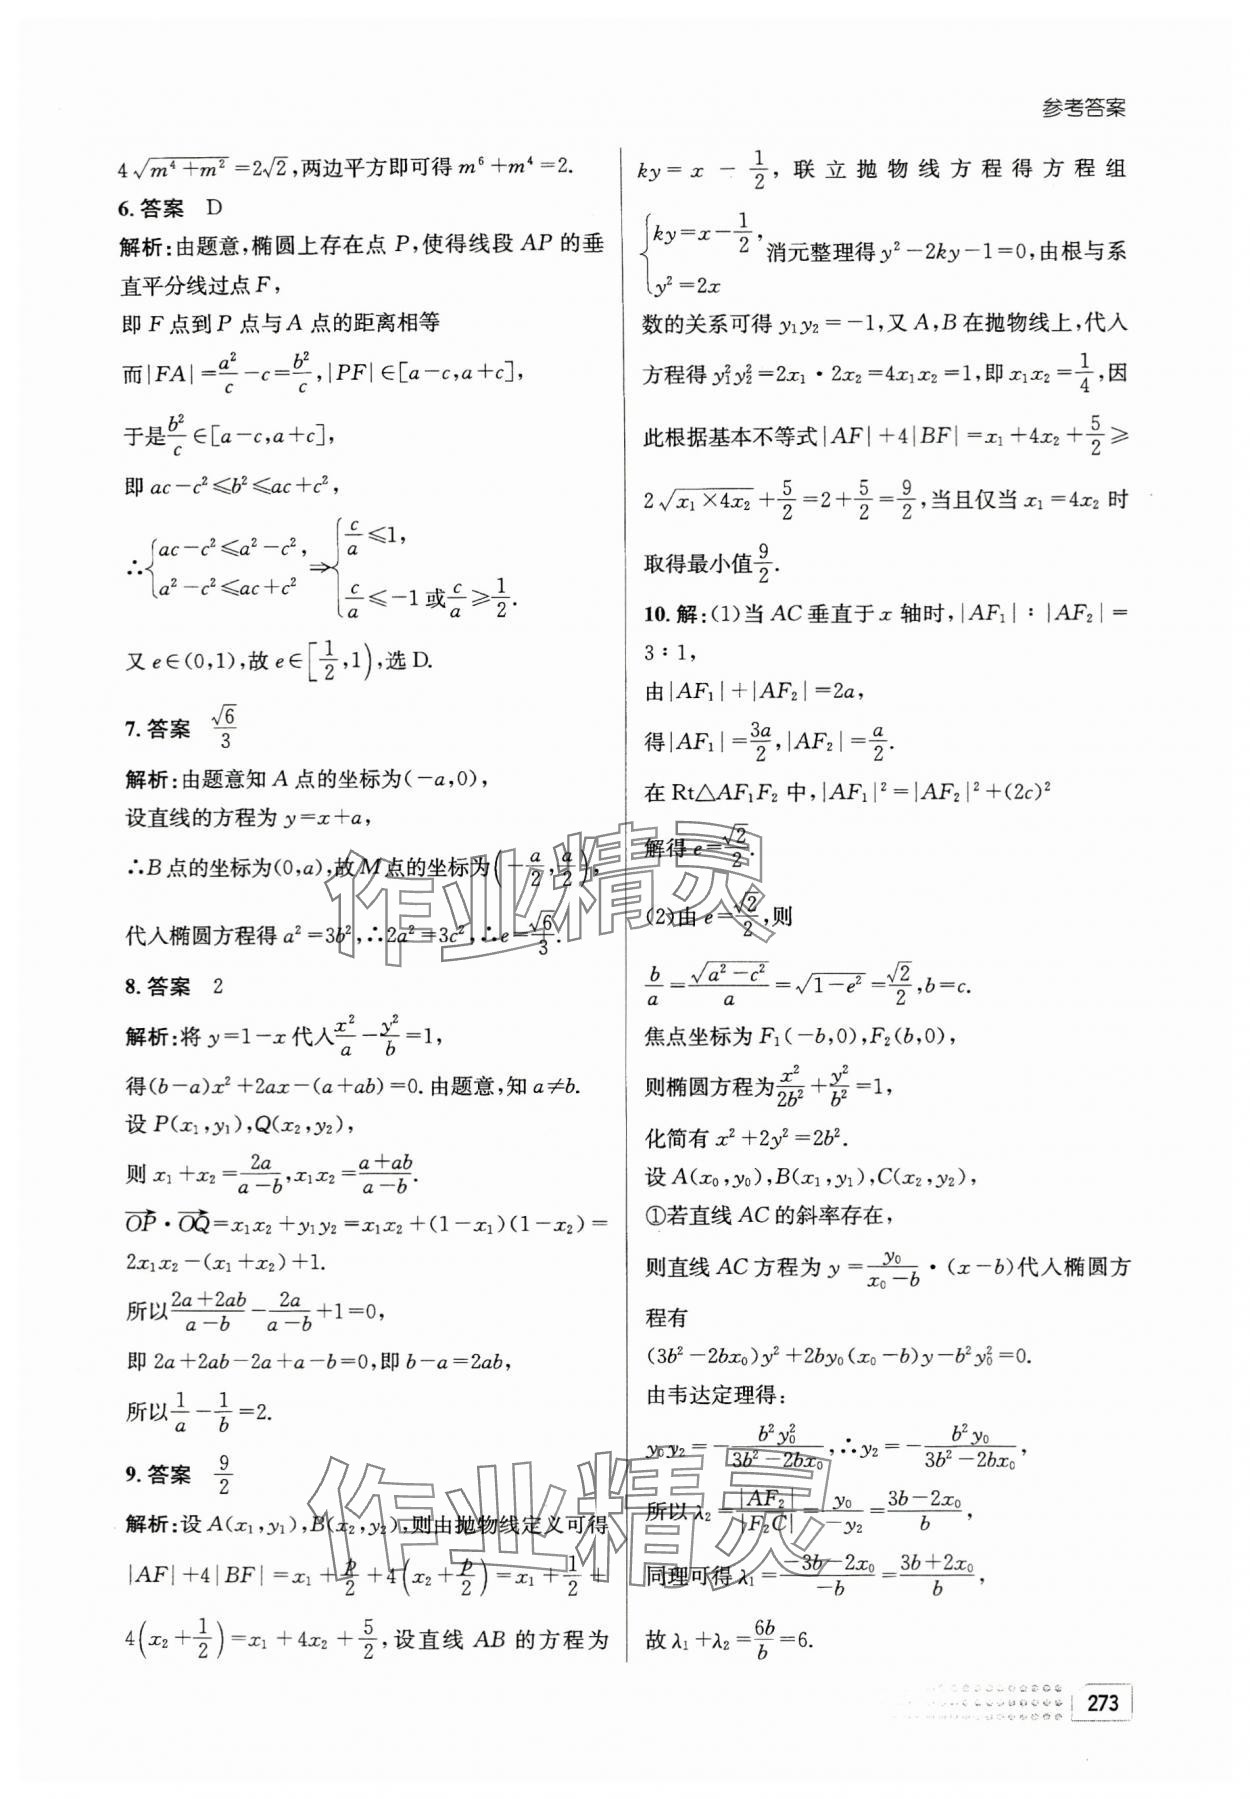 参考答案
4√(m⁴+m²)=2√2,两边平方即可得 m⁶+m⁴=2.
6.答案 D
解析:由题意,椭圆上存在点 P,使得线段 AP 的垂
直平分线过点 F,
即 F 点到 P 点与 A 点的距离相等
而|FA|=a²/c-c=b²/c,|PF|∈[a-c,a+c],
于是b²/c∈[a-c,a+c],
即 ac-c²≤b²≤ac+c²,
∴{ac-c²≤a²-c², a²-c²≤ac+c² ⇒ {c/a≤1, c/a≤-1 或 c/a≥1/2.
又 e∈(0,1),故 e∈[1/2,1),选 D.
7.答案 √6/3
解析:由题意知 A 点的坐标为(-a,0),
设直线的方程为 y=x+a,
∴B 点的坐标为(0,a),故 M 点的坐标为(-a/2,a/2),
代入椭圆方程得 a²=3b²,∴2a²=3c²,∴e=√6/3.
8.答案 2
解析:将 y=1-x 代入x²/a-y²/b=1,
得(b-a)x²+2ax-(a+ab)=0.由题意,知 a≠b.
设 P(x₁,y₁),Q(x₂,y₂),
则 x₁+x₂=2a/(a-b),x₁x₂=(a+ab)/(a-b).
OP·OQ=x₁x₂+y₁y₂=x₁x₂+(1-x₁)(1-x₂)=
2x₁x₂-(x₁+x₂)+1.
所以(2a+2ab)/(a-b)-2a/(a-b)+1=0,
即 2a+2ab-2a+a-b=0,即 b-a=2ab,
所以1/a-1/b=2.
9.答案 9/2
解析:设 A(x₁,y₁),B(x₂,y₂),则由抛物线定义可得
|AF|+4|BF|=x₁+p/2+4(x₂+p/2)=x₁+1/2+
4(x₂+1/2)=x₁+4x₂+5/2,设直线 AB 的方程为
ky=x-1/2,联立抛物线方程得方程组
{ky=x-1/2, y²=2x 消元整理得 y²-2ky-1=0,由根与系
数的关系可得 y₁y₂=-1,又 A,B 在抛物线上,代入
方程得 y₁²y₂²=2x₁·2x₂=4x₁x₂=1,即 x₁x₂=1/4,因
此根据基本不等式|AF|+4|BF|=x₁+4x₂+5/2≥
2√(x₁×4x₂)+5/2=2+5/2=9/2,当且仅当 x₁=4x₂ 时
取得最小值9/2.
10.解:(1)当 AC 垂直于 x 轴时,|AF₁|:|AF₂|=
3:1,
由|AF₁|+|AF₂|=2a,
得|AF₁|=3a/2,|AF₂|=a/2.
在 Rt△AF₁F₂ 中,|AF₁|²=|AF₂|²+(2c)²
解得 e=√2/2.
(2)由 e=√2/2,则
b/a=√(a²-c²)/a=√(1-e²)=√2/2,b=c.
焦点坐标为 F₁(-b,0),F₂(b,0),
则椭圆方程为x²/2b²+y²/b²=1,
化简有 x²+2y²=2b².
设 A(x₀,y₀),B(x₁,y₁),C(x₂,y₂),
①若直线 AC 的斜率存在,
则直线 AC 方程为 y=y₀/(x₀-b)·(x-b)代入椭圆方
程有
(3b²-2bx₀)y²+2by₀(x₀-b)y-b²y₀²=0.
由韦达定理得:
y₀y₂=-b²y₀²/(3b²-2bx₀),∴y₂=-b²y₀/(3b²-2bx₀),
所以 λ₂=|AF₂|/|F₂C|=y₀/-y₂=(3b-2x₀)/b,
同理可得 λ₁=(-3b-2x₀)/-b=(3b+2x₀)/b,
故 λ₁+λ₂=6b/b=6.
273
作业精灵
作业精灵